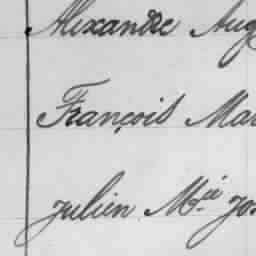 Alexandre Aug
François Mar
Julien M.ie Jos